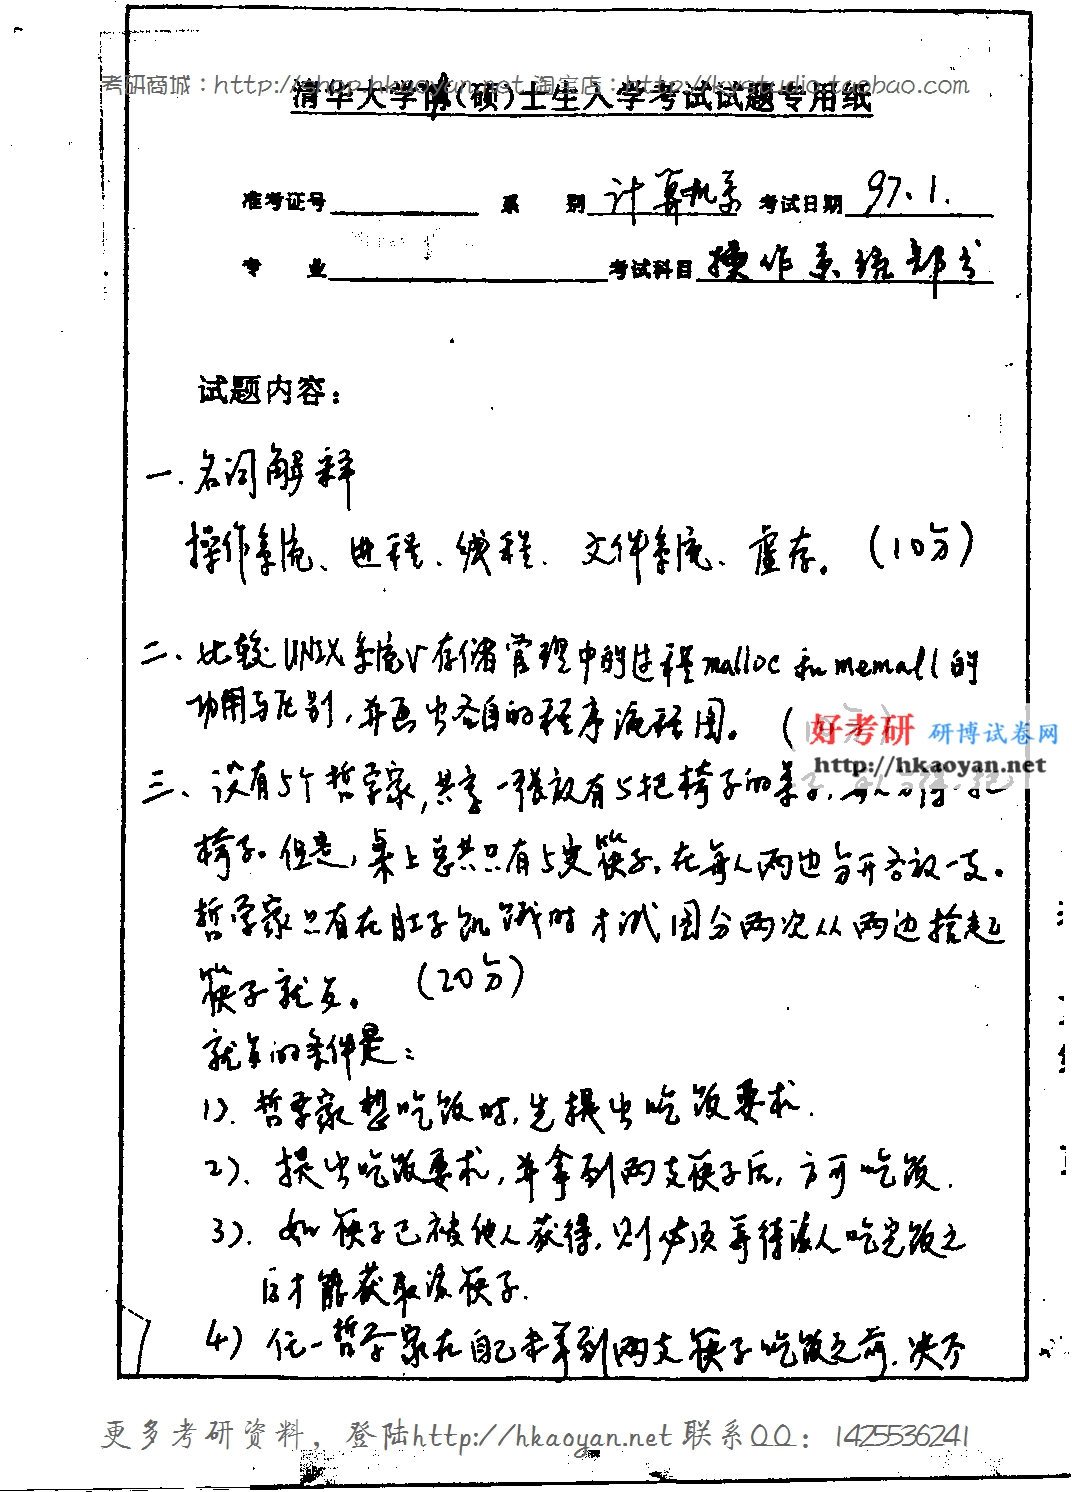 考研商城：http://shop.hkaoyan.net 淘宝店：http://kystudio.taobao.com
清华大学(硕)士生入学考试试题专用纸
准考证号 系 别 计算机系 考试日期 97.1.
专 业 考试科目 操作系统部分
试题内容：
一.名词解释
操作系统、进程、线程、文件系统、虚存。(10分)
二、比较UNIX系统V存储管理中的过程malloc和memall的
功用与区别,并画出各自的程序流程图。(
好考研 研博试卷网
http://hkaoyan.net
三、设有5个哲学家,共享一张放有5把椅子的桌子,每人分得一把
椅子。但是,桌上总共只有5支筷子,在每人两边分开各放一支。
哲学家只有在肚子饥饿时才试图分两次从两边拾起
筷子就餐。(20分)
就餐的条件是：
1).哲学家想吃饭时,先提出吃饭要求.
2).提出吃饭要求,并拿到两支筷子后,方可吃饭.
3).如筷子已被他人获得,则必须等待该人吃完饭之
后才能获取该筷子.
4)任一哲学家在自己未拿到两支筷子吃饭之前,决不
更多考研资料，登陆http://hkaoyan.net 联系QQ：1425536241